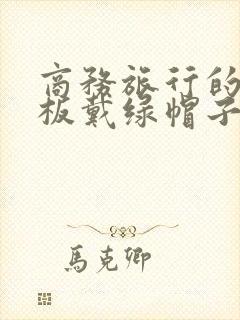 商務旅行的
板戴绿帽子
馬克卿